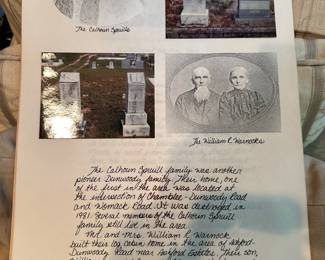 The Calhoun Spruill
The William R. Warnocks
The Calhoun Spruill family was another
pioneer Dunwoody family. Their home, one
of the first in the area was located at
the intersection of Chamblee-Dunwoody Road
and Womack Road. It was destroyed in
1981. Several members of the Calhoun Spruill
family still live in the area.
Mr. and Mrs. William R. Warnock
built their log cabin home in the area of Ashford-
Dunwoody Road near Ashford Estates. Their son,